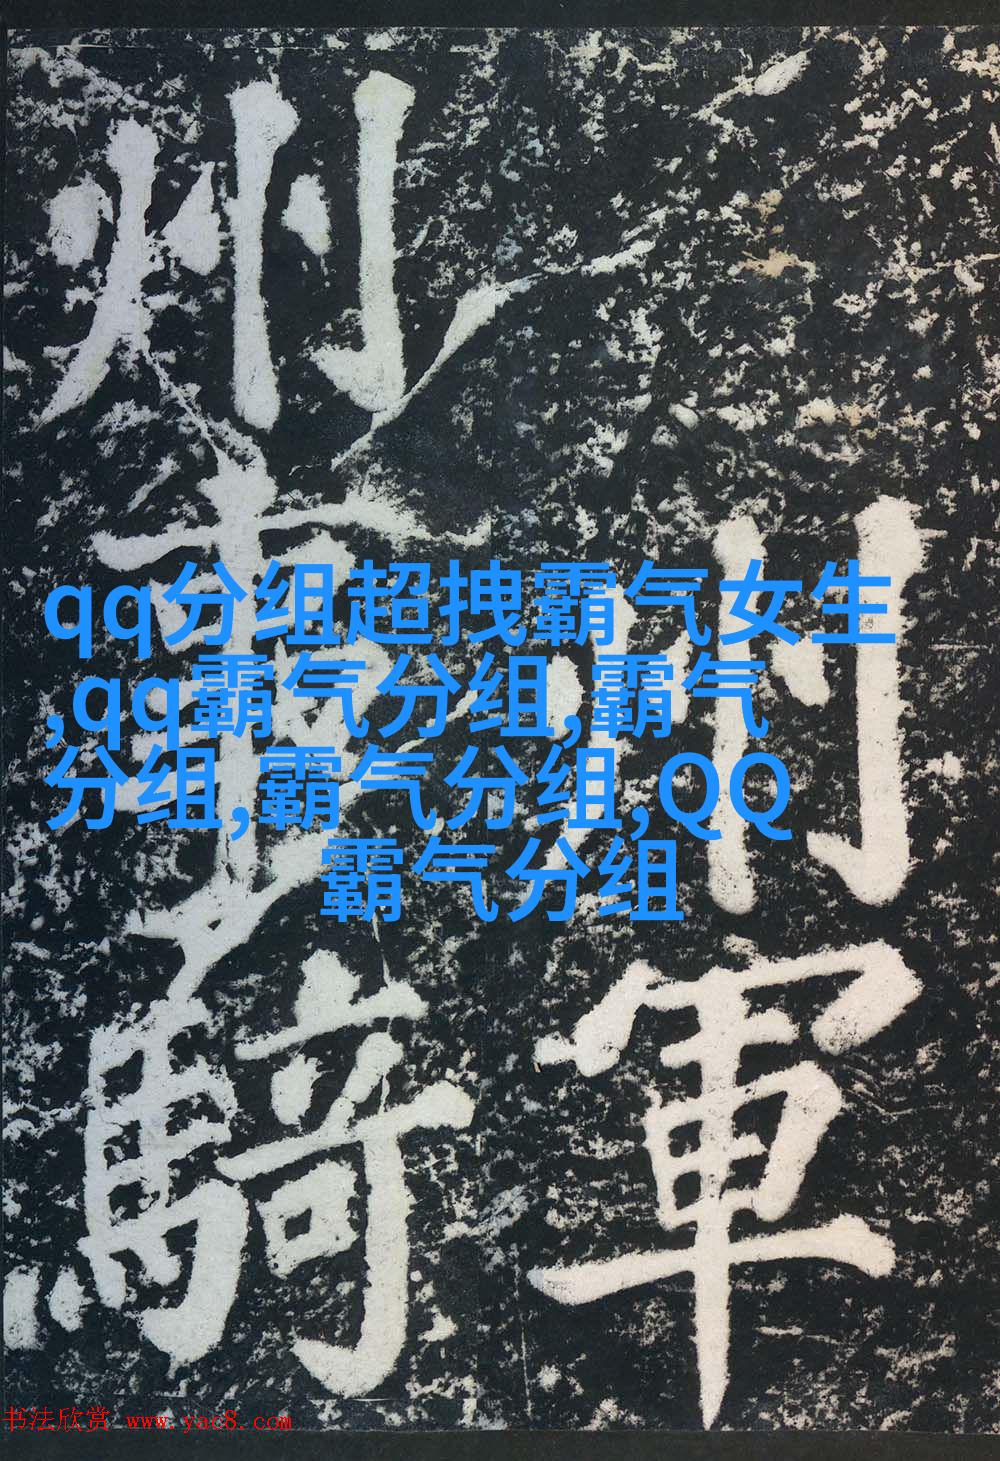 qq分组超拽霸气女生
,qq霸气分组,霸气
分组,霸气分组,QQ
霸气分组
州軍
州騎
书法欣赏 www.yac8.com